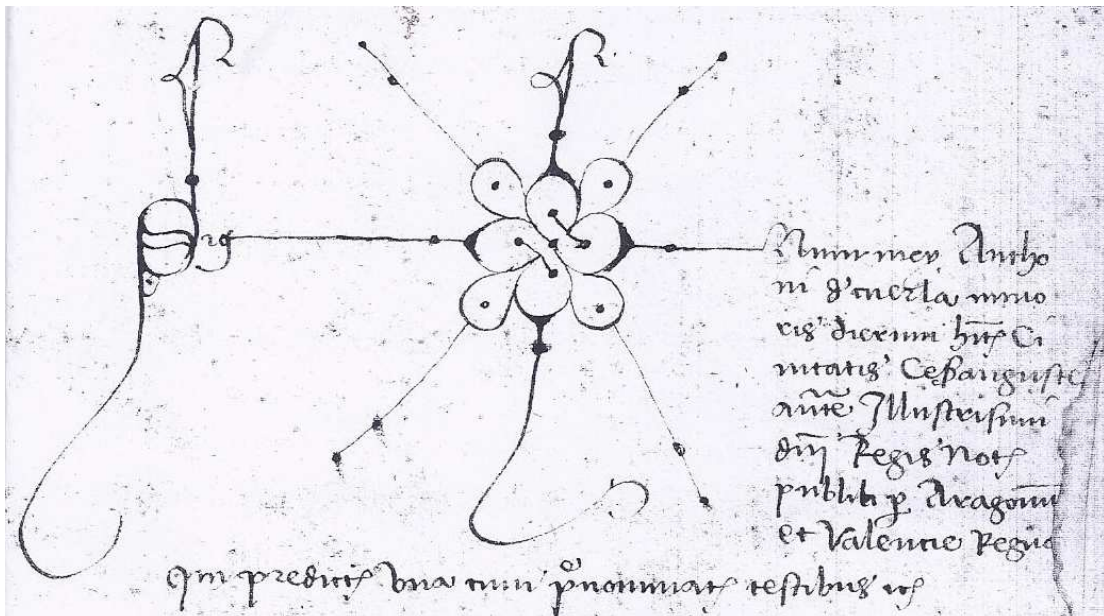 Sig num mey Antho
nii d'cuerla mino
ris dierum hnt Ci
uitatis Cesarauguste
aucte Illustrisimi
dni Regis Not
publici p Aragonu
et Valencie Regna
Qui predictis vna cum pnominat testibus etc